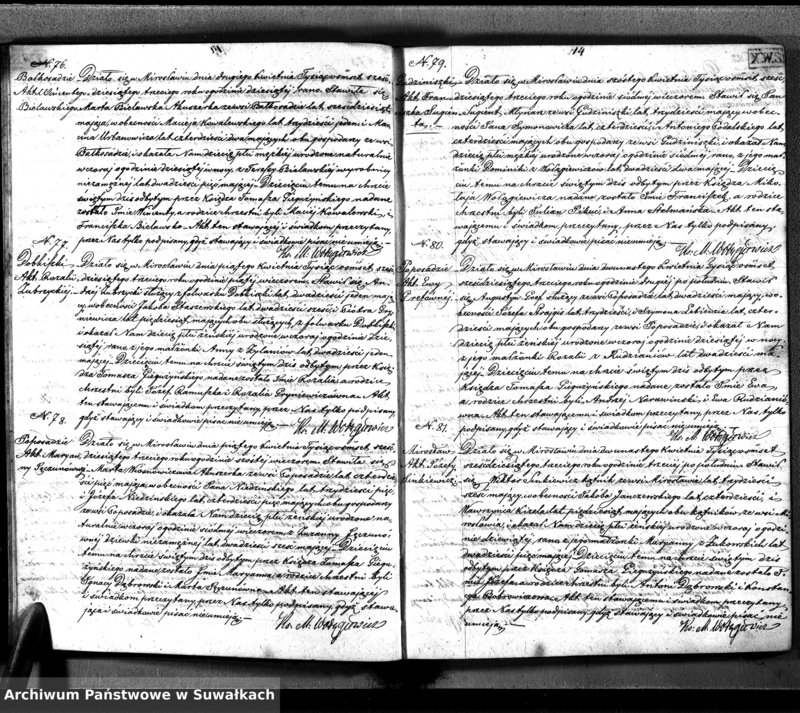 N. 76.
Bałkosadzie Działo się w Mirosławiu dnia drugiego Kwietnia Tysiąc ośmset sześć
Akt Wincentego dziesiątego trzeciego roku o godzinie dziesiątej rano. Stawiła się
Bielawskiego Marta Bielawska Akuszerka ze wsi Bałkosadzie lat sześćdziesiąt
mająca, w obecności Macieja Kowalewskiego lat trzydzieści jeden i Mar
cina Urbanowicza lat czterdzieści dwa mających, obu gospodarzy ze wsi
Bałkosadzie, i okazała Nam dziecię płci męzkiej urodzone naturalnie
wczoraj o godzinie dziesiątej w nocy, z Józefy Bielawskiej wyrobnicy
niezamężnej lat dwadzieścia pięć mającej. Dziecięciu temu na chrzcie
świętym dziś odbytym przez Księdza Tomasza nadane
zostało Imie Wincenty, a rodzice chrzestni byli Maciej Kowalewski, i
Franciszka Bielawska. Akt ten stawającej i świadkom przeczytany,
przez Nas tylko podpisany, gdyż stawający i świadkowie pisać nieumieją.
Ks. M. Wołągiewicz
N. 77.
Dobilszki Działo się w Mirosławiu dnia piątego Kwietnia Tysiąc ośmset sześć
Akt Rozalii dziesiątego trzeciego roku o godzinie piątej wieczorem. Stawił się An
Zubrzyckiej drzej Zubrzycki służący z folwarku lat dwadzieścia jeden mają
cy, w obecności Jakuba Staszewskiego lat dwadzieścia sześć, i Piotra
lat pięćdziesiąt mających, obu służących z folwarku
i okazał Nam dziecię płci żeńskiej urodzone wczoraj o godzinie dzie
siątej rano z jego małżonki Anny z lat dwadzieścia jeden
mającej. Dziecięciu temu na chrzcie świętym dziś odbytym przez Księ
dza Tomasza nadane zostało Imie Rozalia, a rodzice
chrzestni byli Józef i Rozalia Akt
ten stawającemu i świadkom przeczytany, przez Nas tylko podpisany,
gdyż stawający i świadkowie pisać nieumieją.
Ks. M. Wołągiewicz
N. 78.
Poposadzie Działo się w Mirosławiu dnia piątego Kwietnia Tysiąc ośmset sześć
Akt Maryan dziesiątego trzeciego roku o godzinie szóstej wieczorem. Stawiła się
ny Marta Akuszerka ze wsi Poposadzie lat czterdzieści
pięć mająca, w obecności Jana lat trzydzieści pięć
i Józefa lat czterdzieści pięć mających, obu gospodarzy
ze wsi Poposadzie, i okazała Nam dziecię płci żeńskiej urodzone na
turalnie wczoraj o godzinie siódmej wieczorem z Zuzanny
dziewki niezamężnej lat dwadzieścia sześć mającej. Dziecięciu
temu na chrzcie świętym dziś odbytym przez Księdza Tomasza
nadane zostało Imie Maryanna, a rodzice chrzestni byli
Ignacy Dąbrowski i Marta Akt ten stawającej
i świadkom przeczytany, przez Nas tylko podpisany, gdyż stawa
jąca i świadkowie pisać nieumieją.
Ks. M. Wołągiewicz
14
X.W.3
N. 79.
Gudziniszki Działo się w Mirosławiu dnia szóstego Kwietnia Tysiąc ośmset sześć
Akt Fran dziesiątego trzeciego roku o godzinie siódmej wieczorem. Stawił się Jan
ciszka Sugient, Młynarz ze wsi Gudziniszki, lat trzydzieści mający, w obec
ności Jana Symonowicza lat czterdzieści, i Antoniego lat
czterdzieści mających, obu gospodarzy ze wsi Gudziniszki, i okazał Nam
dziecię płci męzkiej urodzone wczoraj o godzinie siódmej rano, z jego mał
żonki Dominiki z Wołągiewiczów lat dwadzieścia dwa mającej. Dziecię
ciu temu na chrzcie świętym dziś odbytym przez Księdza Miko
łaja Wołągiewicza, nadane zostało Imie Franciszek, a rodzice
chrzestni byli Julian i Anna Akt ten sta
wającemu i świadkom przeczytany, przez Nas tylko podpisany,
gdyż stawający i świadkowie pisać nieumieją.
Ks. M. Wołągiewicz
N. 80.
Poposadzie Działo się w Mirosławiu dnia dwunastego Kwietnia Tysiąc ośmset
Akt Ewy sześćdziesiątego trzeciego roku o godzinie drugiej po południu. Stawił
się Augustyn służący ze wsi Poposadzie, lat dwadzieścia mający, w o
becności Józefa lat trzydzieści, i Szymona lat czter
dzieści mających, obu gospodarzy ze wsi Poposadzie, i okazał Nam
dziecię płci żeńskiej urodzone wczoraj o godzinie dziesiątej w nocy
z jego małżonki Rozalii z lat dwadzieścia ma
jącej. Dziecięciu temu na chrzcie świętym dziś odbytym przez
Księdza Tomasza nadane zostało Imie Ewa,
a rodzice chrzestni byli Andrzej i Ewa
Akt ten stawającemu i świadkom przeczytany, przez Nas tylko
podpisany, gdyż stawający i świadkowie pisać nieumieją.
Ks. M. Wołągiewicz
N. 81.
Mirosław Działo się w Mirosławiu dnia dwunastego Kwietnia Tysiąc ośmset
Akt Józefy sześćdziesiątego trzeciego roku o godzinie trzeciej po południu. Stawił
Sinkiewicz się Wiktor Sinkiewicz kątnik ze wsi Mirosławia lat trzydzieści
sześć mający, w obecności Jakuba Januszewskiego lat czterdzieści, i
Wawrzyńca lat pięćdziesiąt mających, obu kątników ze wsi Mi
rosławia, i okazał Nam dziecię płci żeńskiej urodzone wczoraj o godzi
nie dziewiątej rano, z jego małżonki Maryanny z Żukowskich lat
dwadzieścia pięć mającej. Dziecięciu temu na chrzcie świętym dziś
odbytym przez Księdza Tomasza nadane zostało I
mie Józefa, a rodzice chrzestni byli Antoni Dąbrowski i Konstan
cya Bobrowiczowa. Akt ten stawającemu i świadkom przeczytany,
przez Nas tylko podpisany, gdyż stawający i świadkowie pisać nie
umieją.
Ks. M. Wołągiewicz
Archiwum Państwowe w Suwałkach